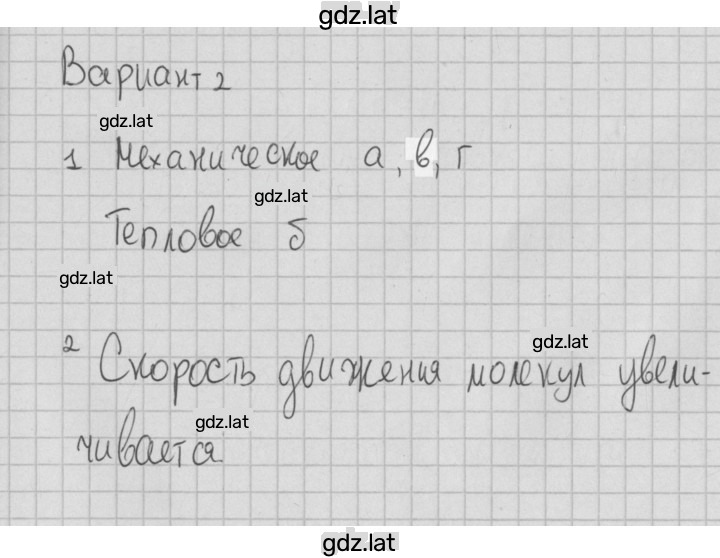 gdz.lat
Вариант 2
gdz.lat
1 Механическое а, в, г
gdz.lat
Тепловое б
gdz.lat
gdz.lat
2 Скорость движения молекул увели-
gdz.lat
чивается
gdz.lat